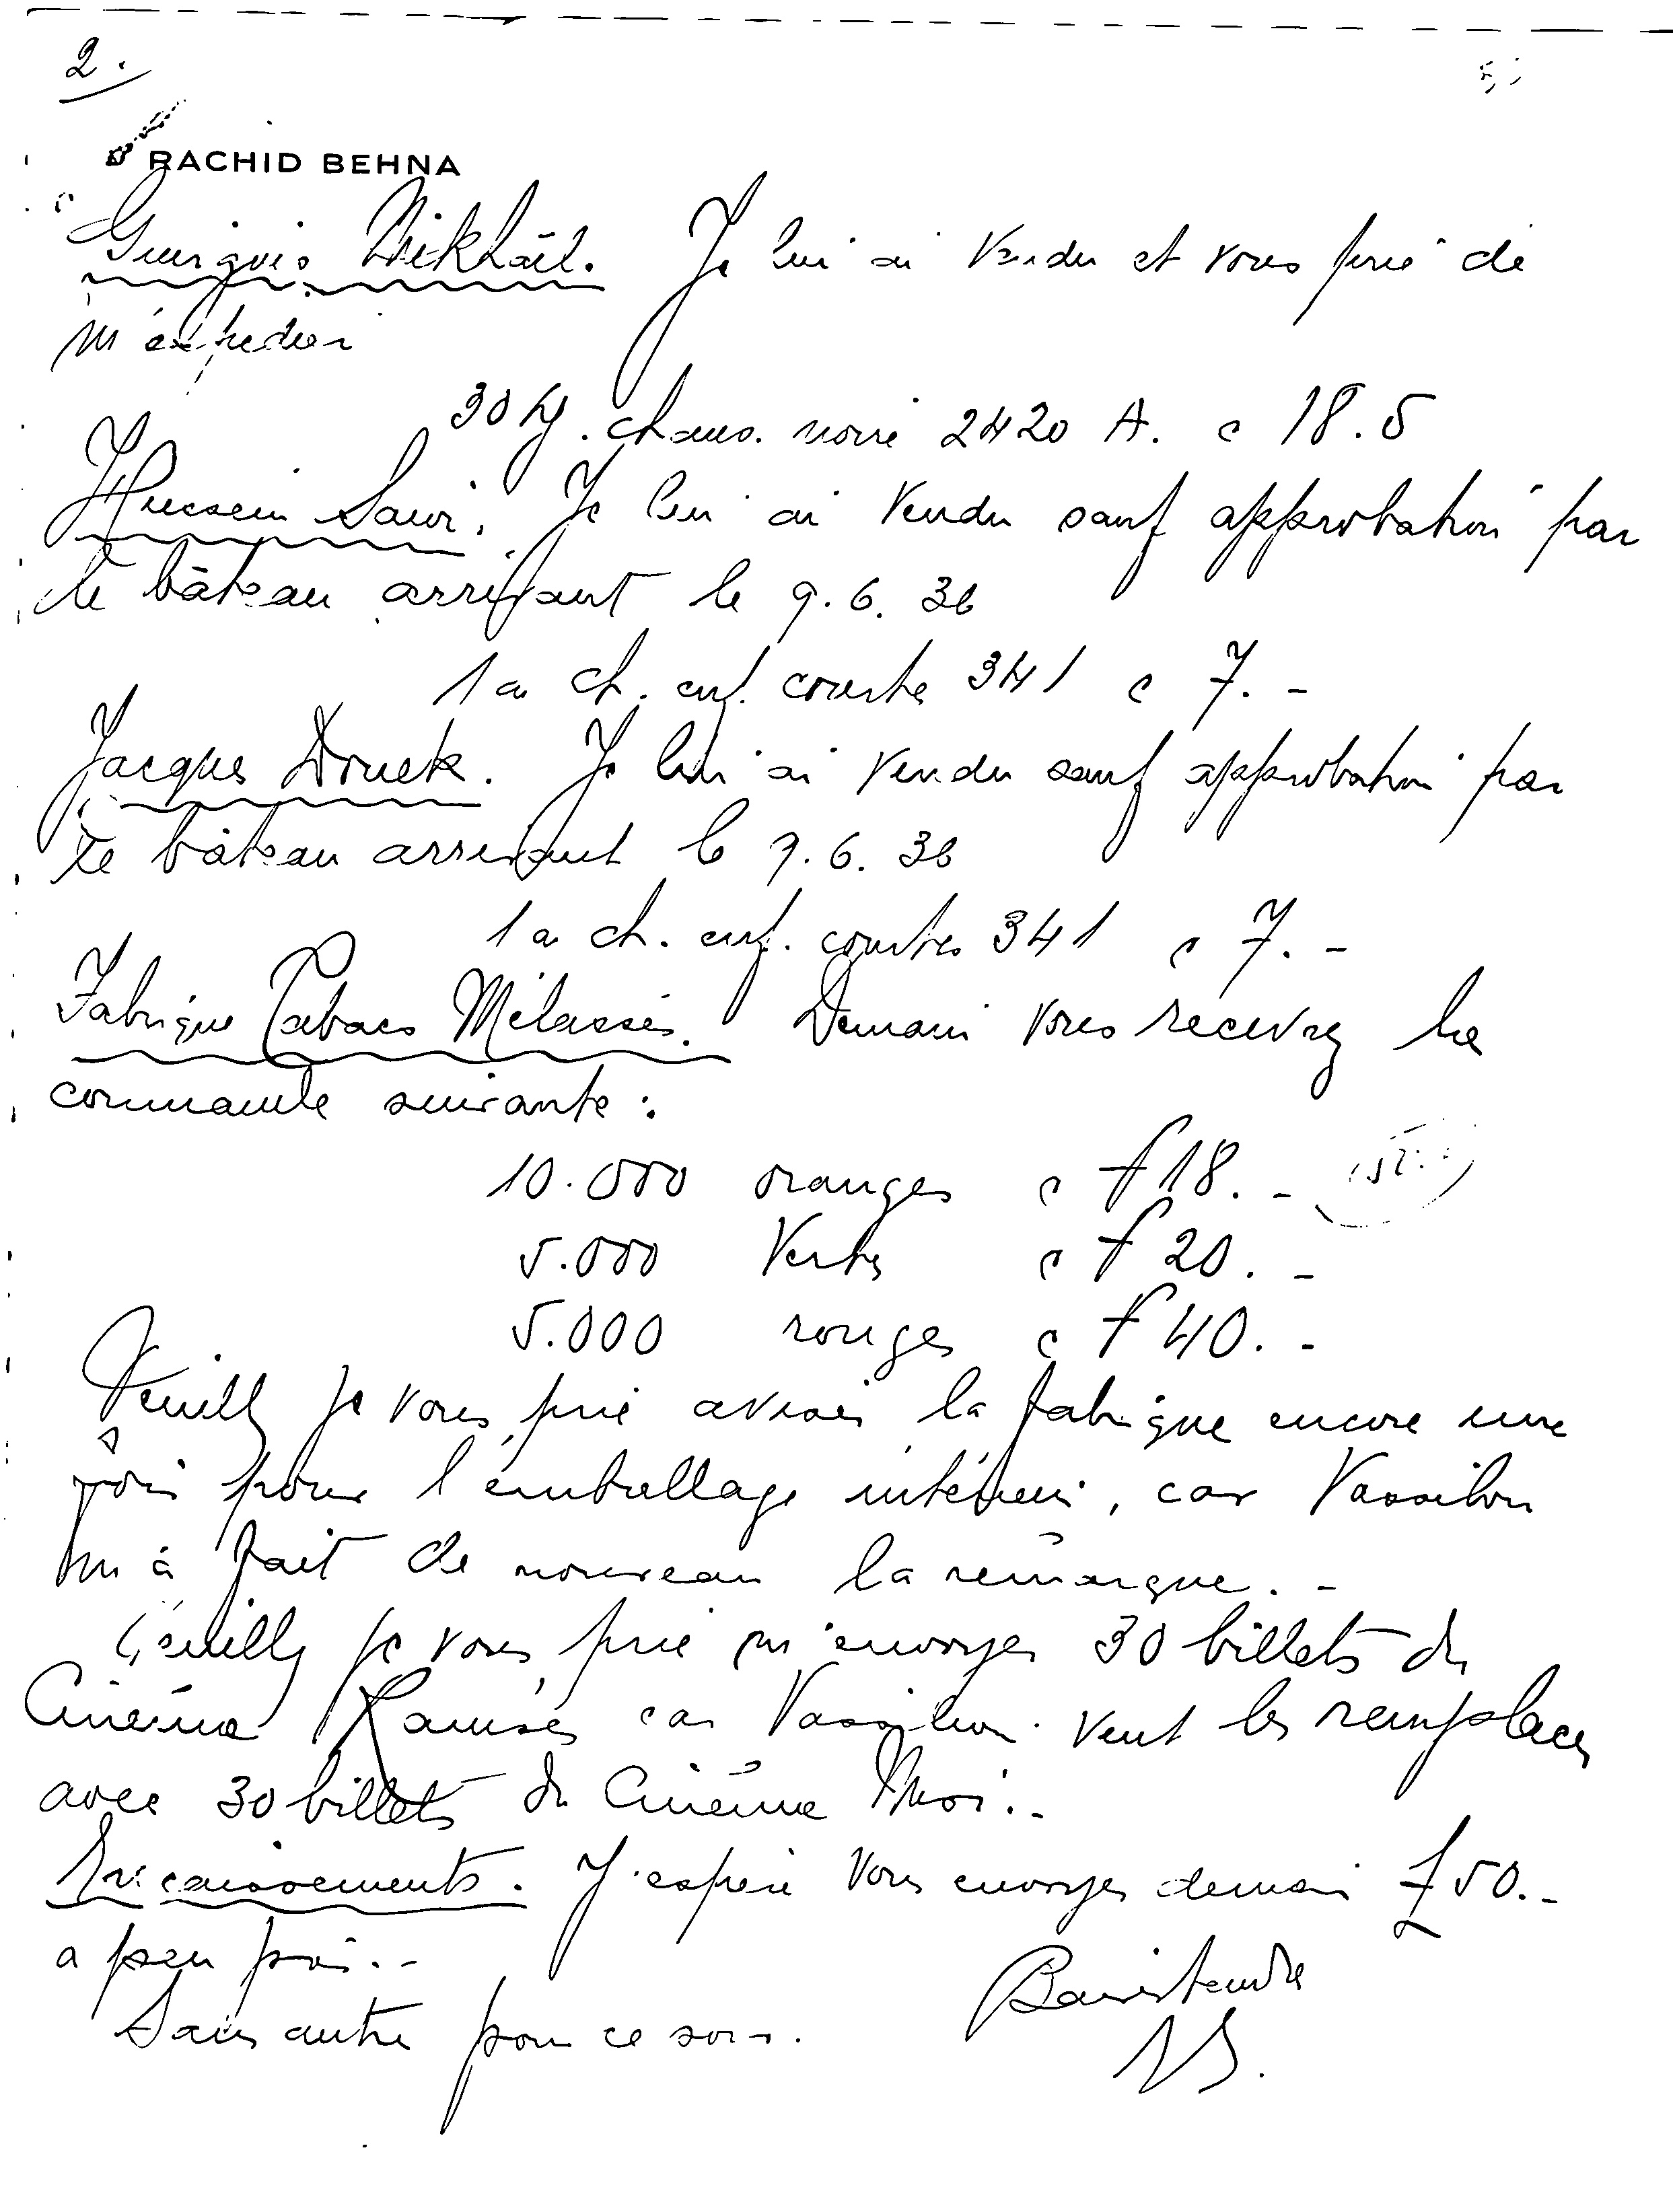 2.
RACHID BEHNA
Guirguis Mikhaïl. Je lui ai vendu et vous prie de
m'expedier
30 kg. chaus. noire 2420 A. c 18.5
Hussein Sawi. Je lui ai vendu sauf approbation par
le bâteau arrivant le 9.6.36
1a ch. enf. courte 341 c 7.-
Jacques Druek. Je lui ai vendu sauf approbation par
le bâteau arrivant le 9.6.36
1a ch. enf. courtes 341 c 7.-
Fabrique Tabacs Mélassés. Demain vous recevrez la
commande suivante :
10.000 oranges c £ 18.-
5.000 Vertes c £ 20.-
5.000 rouges c £ 40.-
Veuillez je vous prie aviser la fabrique encore une
fois pour l'emballage intérieur, car Vassilou
m'à fait de nouveau la remarque.-
Veuillez je vous prie m'envoyer 30 billets du
Cinéma Ramsés car Vassilou veut les remplacer
avec 30 billets du Cinéma
Encaissements. J'espère vous envoyer demain £ 50.-
a peu près.-
Sans autre pour ce soir.